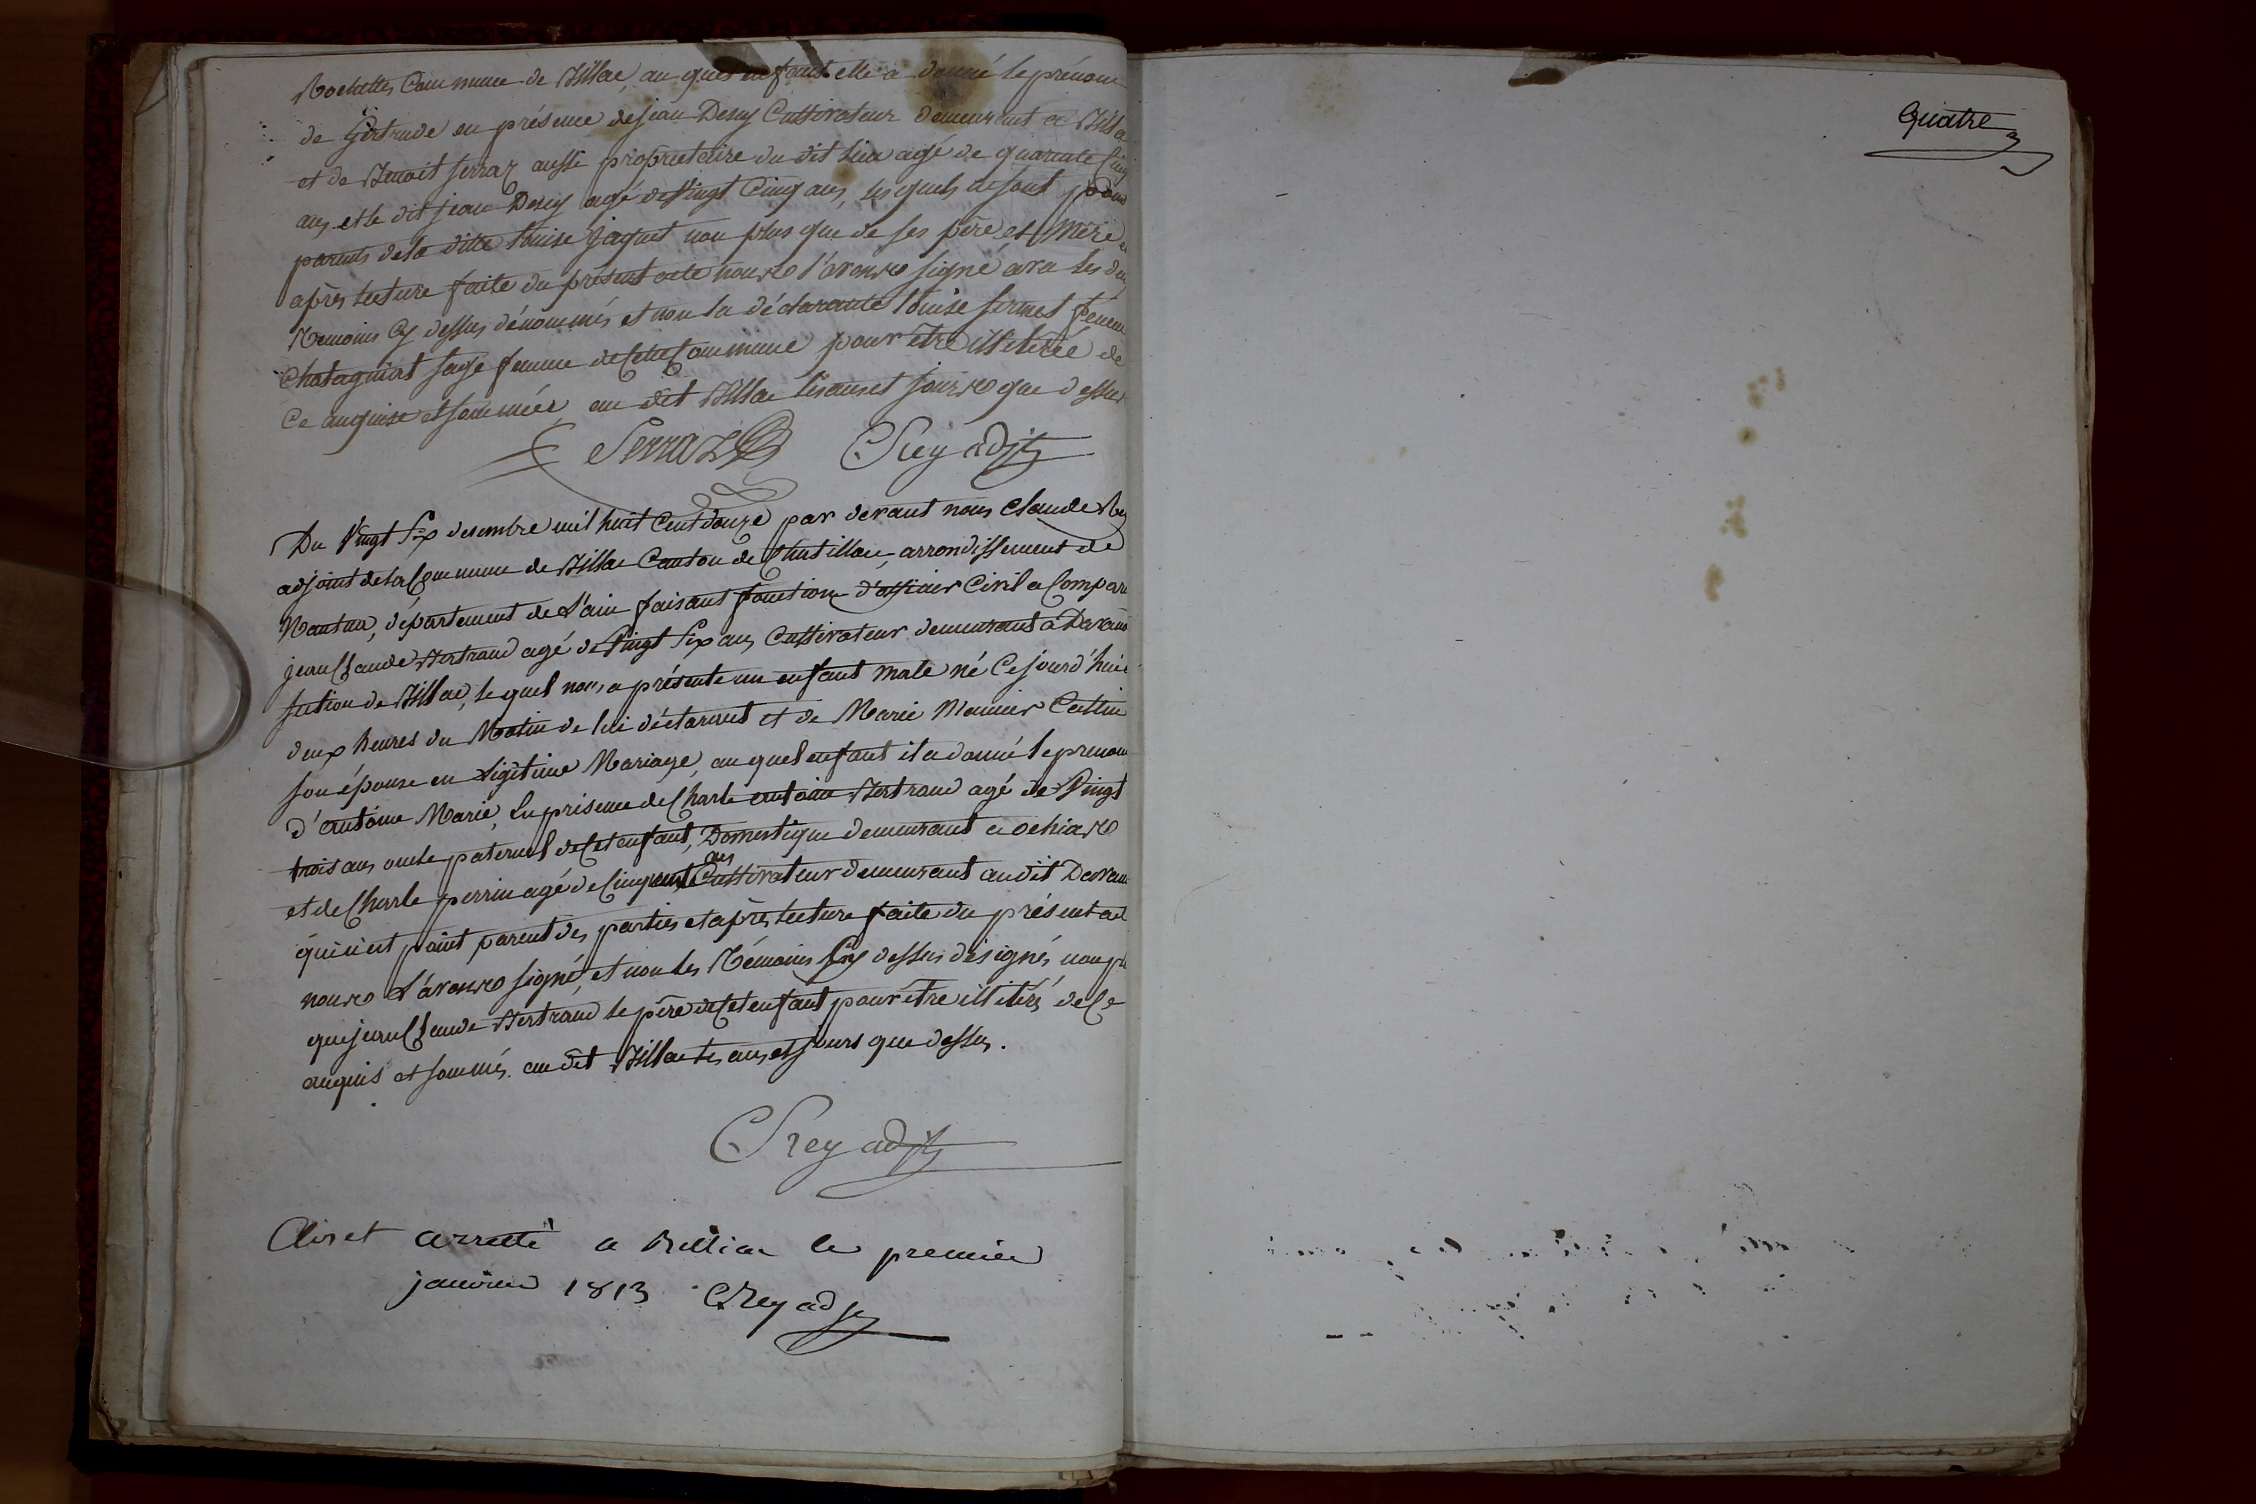 Rochettes Commune de Billiac, au quel enfant elle a donné le prénom
de Gertrude en présence de jean Deny Cultivateur demeurant a Billia
et de Benoit serraz aussi proprietaire du dit lieu agé de quarante Cinq
ans et le dit jean Deny agé de Vingt Cinq ans, les quels ne sont point
parents de la ditte louise jaquet non plus que de ses père et Mère et
après lecture faite du présent acte nous l'avons signé avec les deux
Témoins Cy dessus dénommés et non la déclarante louise femme
Chatagniat sage femme de Cette Commune pour être illiterée de
Ce enquise et sommée, au dit Billiac les ans et jours que dessus
Serraz CRey adjt
Du Vingt Six desembre mil huit Cent douze par devant nous Claude Rey
adjoint de la Commune de Billiac Canton de Chatillon, arrondissement de
Nantua, département de L'ain faisant fonction d'officier Civil a Comparu
jean Claude Bertrand agé de Vingt Six ans Cultivateur demeurant a
section de Billiac, le quel nous a présenté un enfant male né Ce jourd'hui a
deux heures du Matin de lui déclarant et de Marie Mounier Cattin
son épouse en Légitime Mariage, au quel enfant il a donné le prenom
d'antoine Marie, En présence de Charle antoine Bertrand agé de Vingt
trois ans oncle paternel de Cet enfant, Domestique demeurant a ochiaz
et de Charle perrin agé de Cinquante ans Cultivateur demeurant audit
qui n'est point parent des parties et après lecture faite du présent acte
nous L'avons signé, et non les Témoins Cy dessus désignés non plus
que jean Claude Bertrand le père de Cet enfant pour être illiterés de Ce
enquis et sommés. au dit Billiac les ans et jours que dessus.
CRey adjt
Clos et arretté a Billiac le premier
janvier 1813 CRey adjt
Quatre